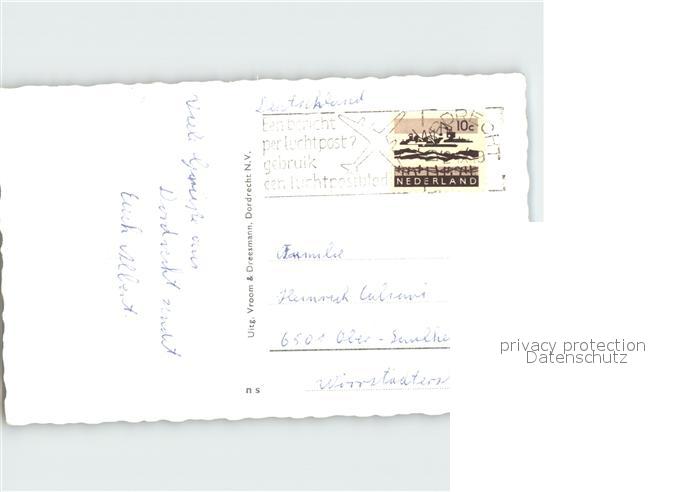 Viele Grüße aus
Dordrecht sendet
Euch Albert.
Uitg. Vroom & Dreesmann, Dordrecht N.V.
n s
Deutschland
Een bericht
per luchtpost?
gebruik
een luchtpostblad
DORDRECHT
10c
NEDERLAND
Familie
Heinrich
6501 Ober-
privacy protection
Datenschutz